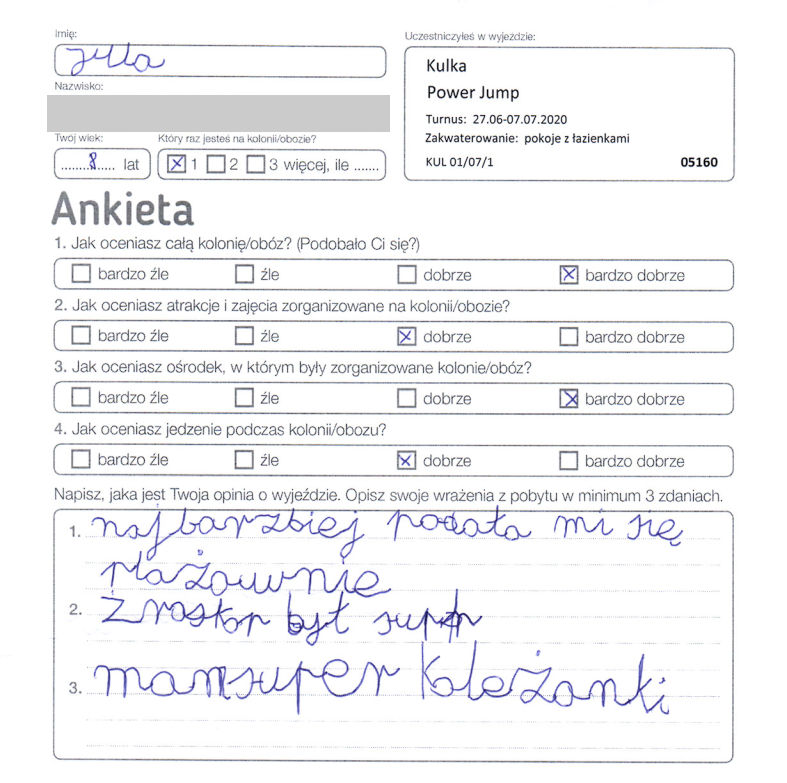 Imię:
Julia
Nazwisko:
Twój wiek:
........8..... lat
Który raz jesteś na kolonii/obozie?
1 2 3 więcej, ile .......
Uczestniczyłeś w wyjeździe:
Kulka
Power Jump
Turnus: 27.06-07.07.2020
Zakwaterowanie: pokoje z łazienkami
KUL 01/07/1 05160
Ankieta
1. Jak oceniasz całą kolonię/obóz? (Podobało Ci się?)
bardzo źle źle dobrze bardzo dobrze
2. Jak oceniasz atrakcje i zajęcia zorganizowane na kolonii/obozie?
bardzo źle źle dobrze bardzo dobrze
3. Jak oceniasz ośrodek, w którym były zorganizowane kolonie/obóz?
bardzo źle źle dobrze bardzo dobrze
4. Jak oceniasz jedzenie podczas kolonii/obozu?
bardzo źle źle dobrze bardzo dobrze
Napisz, jaka jest Twoja opinia o wyjeździe. Opisz swoje wrażenia z pobytu w minimum 3 zdaniach.
1. najbarzbiej mi się
plażownie
2. był super
3. mam super koleżanki